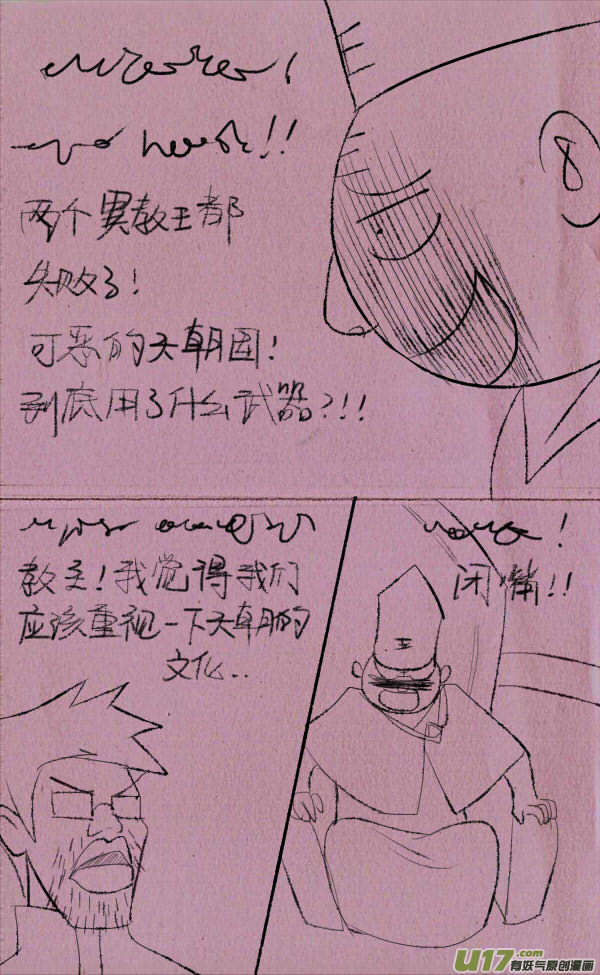 两个异教王都
失败了!
可恶的天朝国!
到底用了什么武器?!!
教主!我觉得我们
应该重视一下天朝的
文化..
闭嘴!!
U17.com
有妖气原创漫画